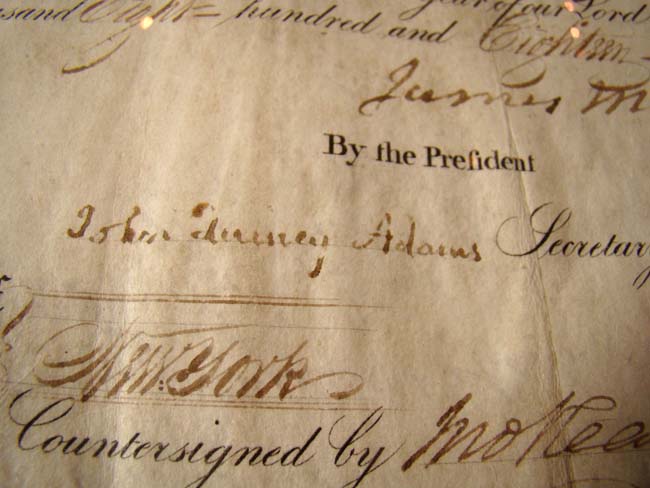 usand Eight hundred and Eighteen
year of our Lord
James M
By the Preſident
John Quincy Adams Secretary
New York
Countersigned by